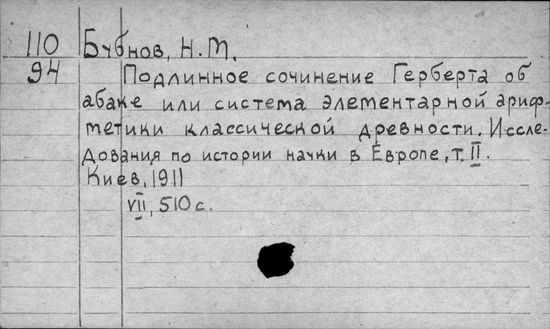 110 Бубнов, Н.М.
94 Подлинное сочинение Герберта об
абаке или система элементарной ариф-
метики классической древности. Иссле-
дования по истории науки в Европе, т. II.
Киев, 1911
VII, 510 с.